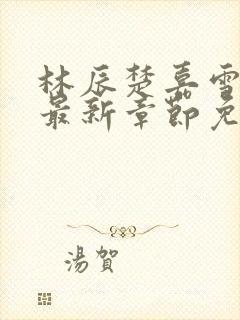 林辰楚嘉雪
最新章節免
湯賀